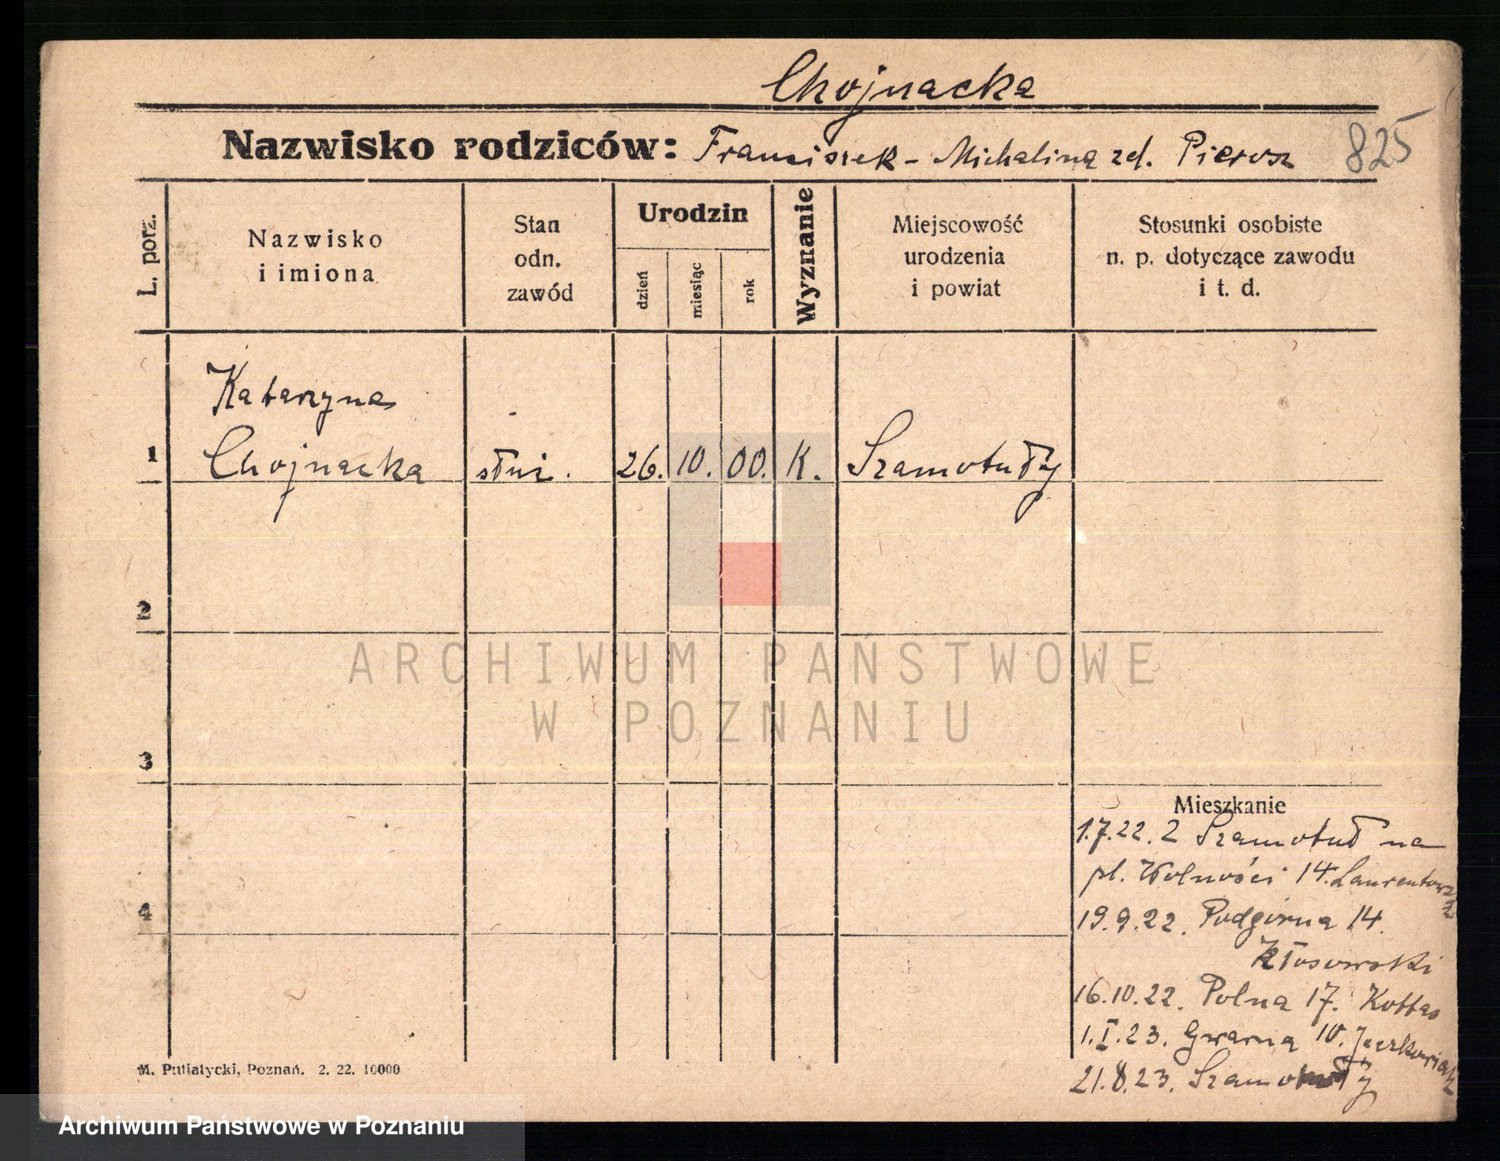 Chojnacka
Nazwisko rodziców: Franciszek - Michalina zd. Pierosz
825
L. porz.
Nazwisko
i imiona
Stan
odn.
zawód
Urodzin
dzień
miesiąc
rok
Wyznanie
Miejscowość
urodzenia
i powiat
Stosunki osobiste
n. p. dotyczące zawodu
i t. d.
Katarzyna
1 Chojnacka służ. 26. 10. 00. K. Szamotuły
2
ARCHIWUM PAŃSTWOWE
W POZNANIU
3
Mieszkanie
1.7.22. z Szamotuł na
pl. Wolności 14.
4
19.9.22. Podgórna 14.
Kłosowski
16.10.22. Polna 17.
1.I.23. Gwarna 10.
21.8.23. Szamotuły
M. Putiatycki, Poznań. 2. 22. 10000
Archiwum Państwowe w Poznaniu